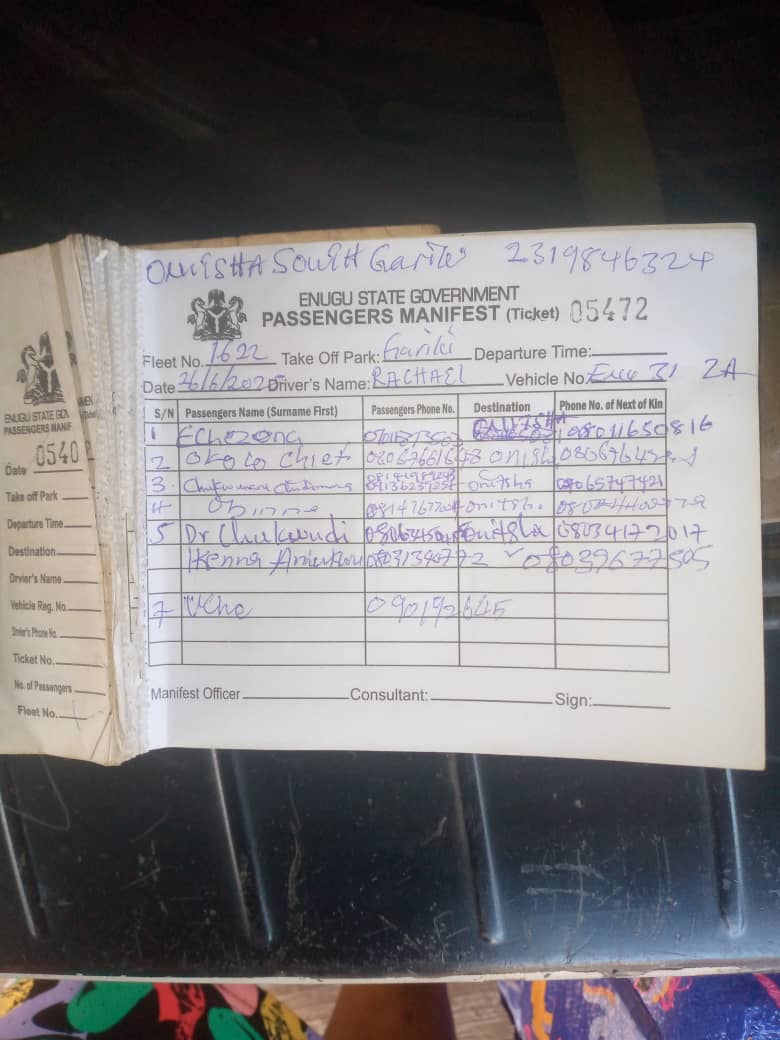 ONITSHA SOUTH Gariki 2319846324
ENUGU STATE GOVERNMENT
PASSENGERS MANIFEST (Ticket) 05472
Fleet No. 1622 Take Off Park: Gariki Departure Time:
Date 26/6/2025 Driver's Name: RACHAEL Vehicle No. Enu 31 ZA
S/N Passengers Name (Surname First) Passengers Phone No. Destination Phone No. of Next of Kin
1 Echezona ONITSHA 08011650816
2 Okolo Chief Onitsha
3 Onitsha 08065747421
4 Obinna Onitsha
5 Dr Chukwudi Onitsha 08034172017
Ikenna 08039677505
7 Uche 090192645
Manifest Officer Consultant: Sign:
ENUGU STATE GOV
PASSENGERS MANIF
0540
Date
Take off Park
Departure Time
Destination
Drvier's Name
Vehicle Reg. No.
Drvier's Phone No.
Ticket No.
No. of Passengers
Fleet No.